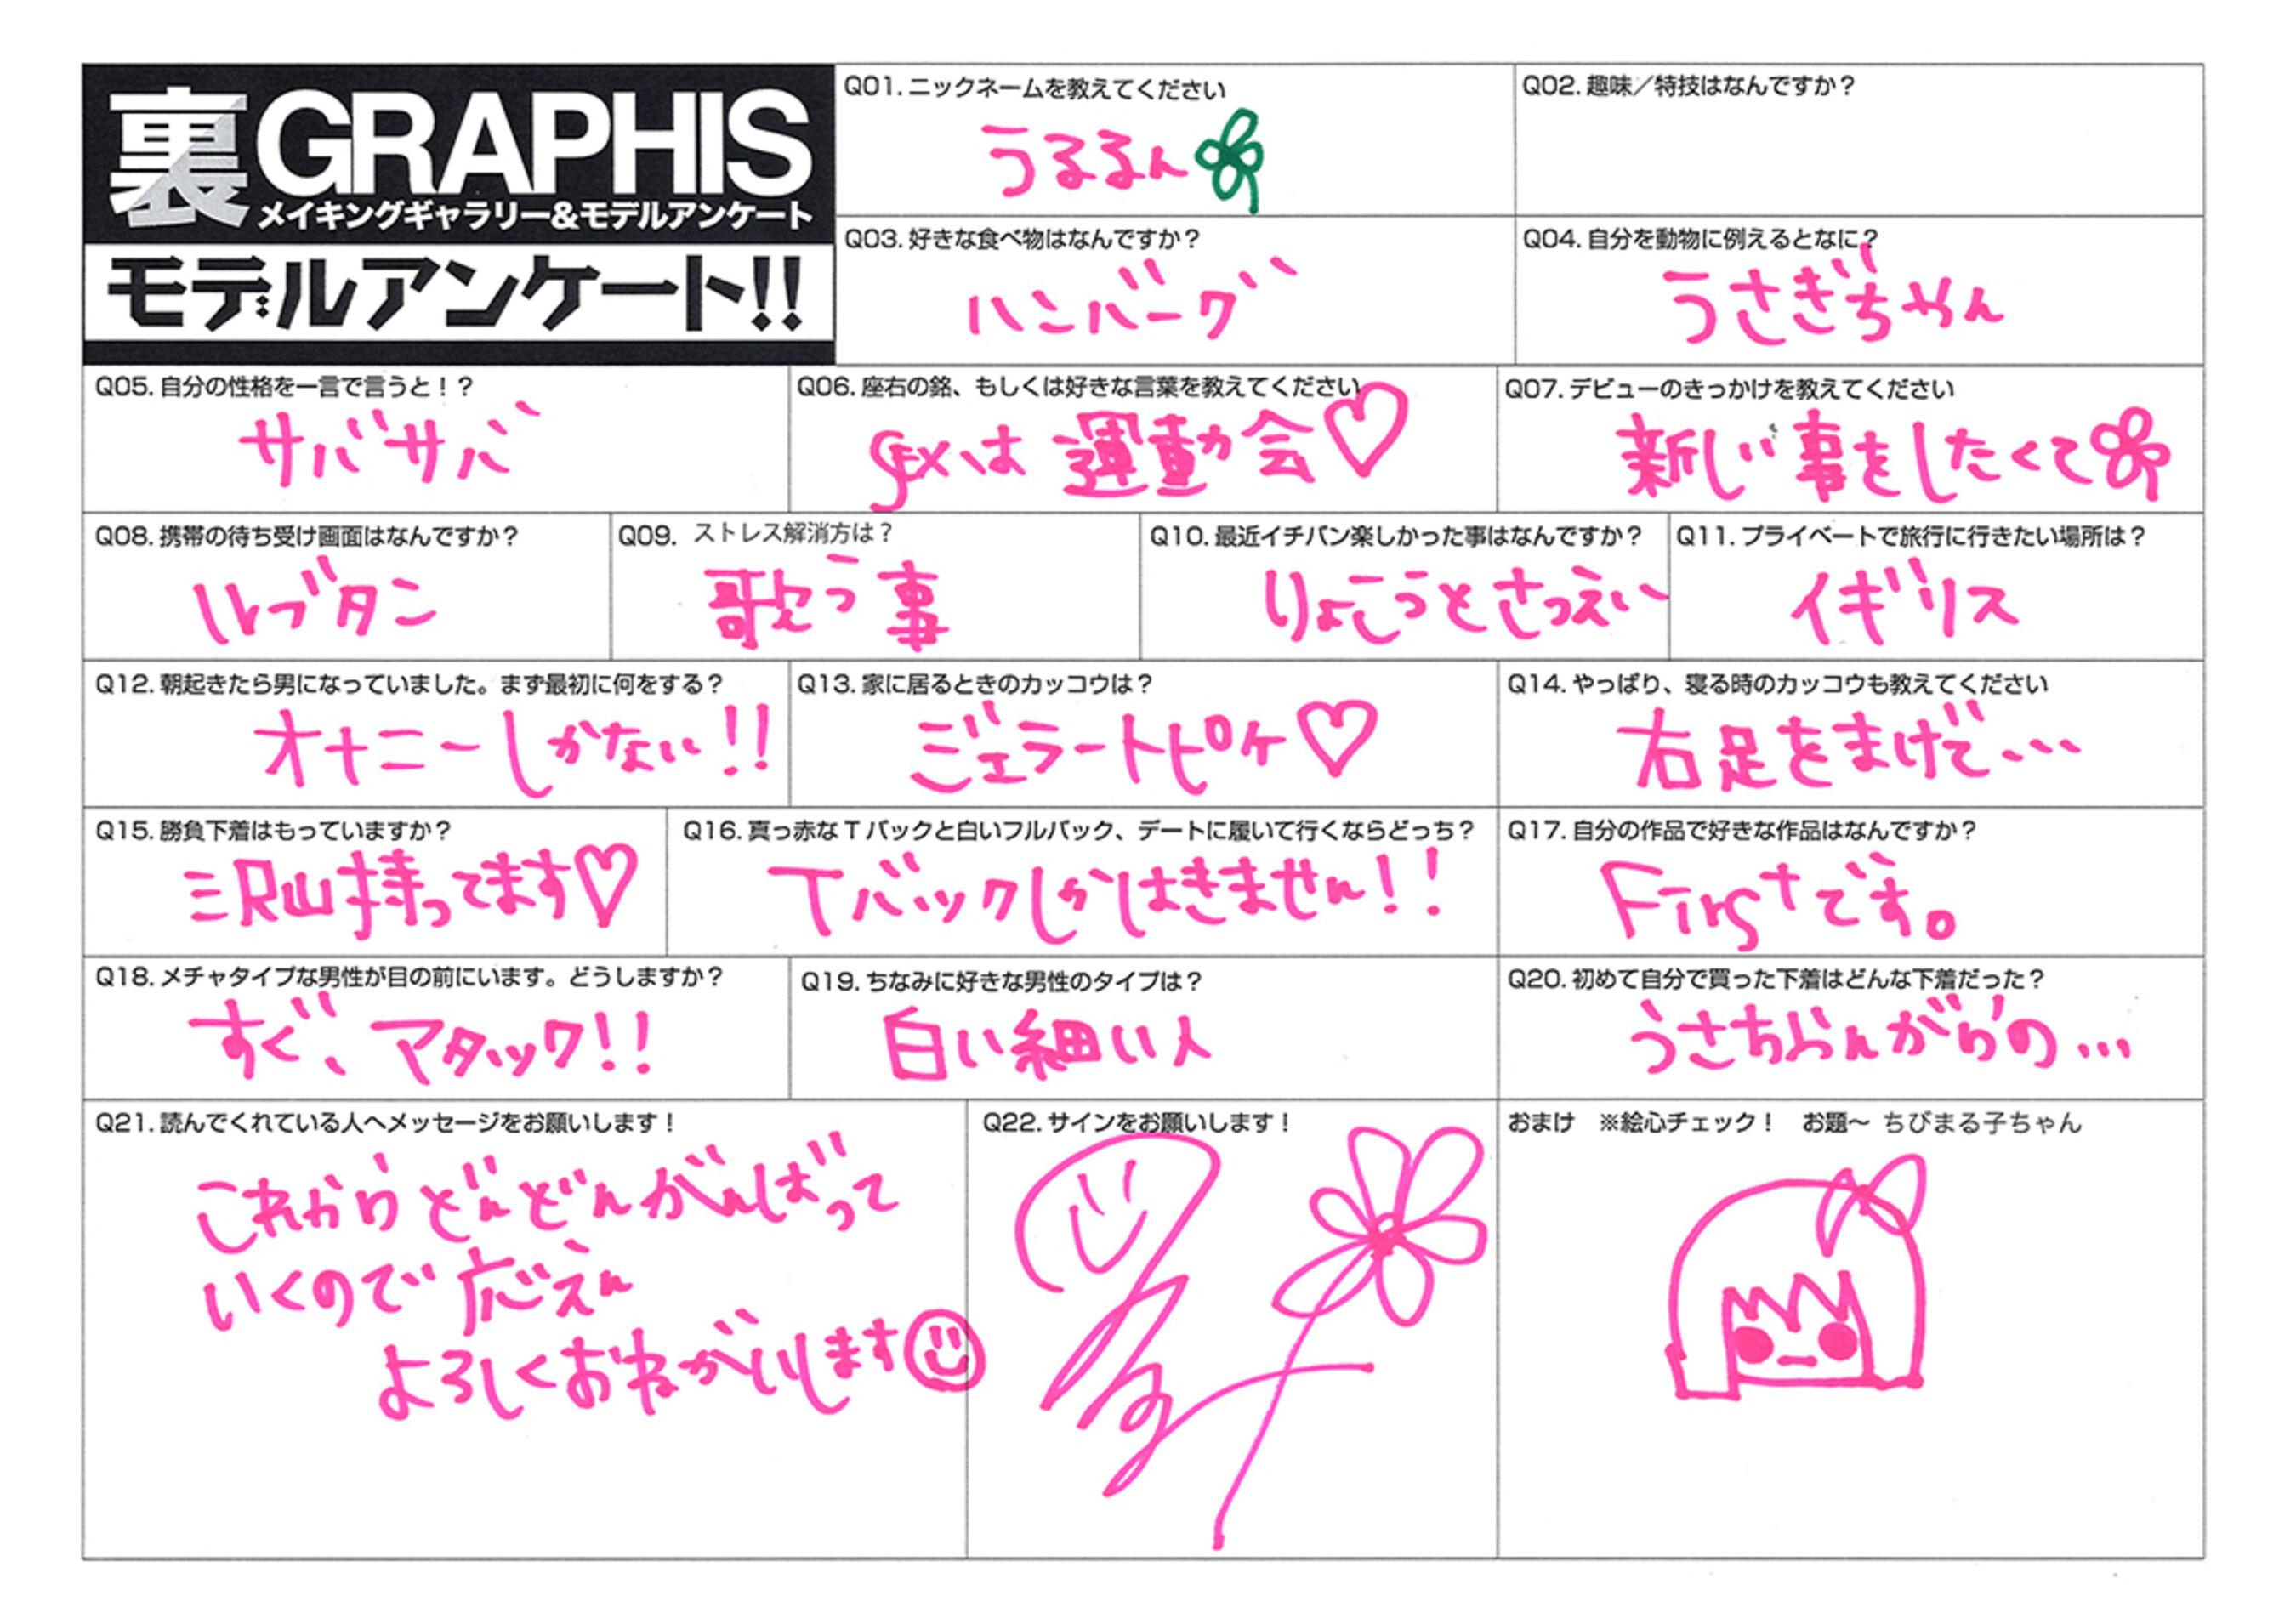 裏GRAPHIS
メイキングギャラリー&モデルアンケート
モデルアンケート!!
Q01. ニックネームを教えてください
うるるん
Q02. 趣味／特技はなんですか？
Q03. 好きな食べ物はなんですか？
ハンバーグ
Q04. 自分を動物に例えるとなに？
うさぎちゃん
Q05. 自分の性格を一言で言うと！？
サバサバ
Q06. 座右の銘、もしくは好きな言葉を教えてください
sexは運動会♡
Q07. デビューのきっかけを教えてください
新しい事をしたくて
Q08. 携帯の待ち受け画面はなんですか？
ルブタン
Q09. ストレス解消方は？
歌う事
Q10. 最近イチバン楽しかった事はなんですか？
りょこうとさつえい
Q11. プライベートで旅行に行きたい場所は？
イギリス
Q12. 朝起きたら男になっていました。まず最初に何をする？
オナニーしかない!!
Q13. 家に居るときのカッコウは？
ジェラートピケ♡
Q14. やっぱり、寝る時のカッコウも教えてください
右足をまげて…
Q15. 勝負下着はもっていますか？
沢山持ってます♡
Q16. 真っ赤なTバックと白いフルバック、デートに履いて行くならどっち？
Tバックしかはきません!!
Q17. 自分の作品で好きな作品はなんですか？
Firstです。
Q18. メチャタイプな男性が目の前にいます。どうしますか？
すぐ、アタック!!
Q19. ちなみに好きな男性のタイプは？
白い細い人
Q20. 初めて自分で買った下着はどんな下着だった？
がらの…
Q21. 読んでくれている人へメッセージをお願いします！
これからどんどんがんばって
いくので応えん
よろしくおねがいします
Q22. サインをお願いします！
おまけ　※絵心チェック！　お題～ ちびまる子ちゃん